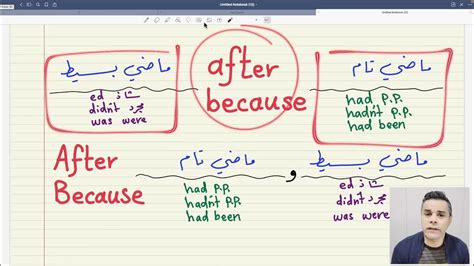 Untitled Notebook (10)
Untitled Notebook (10)
ماضي بسيط
ed شاذ
didn't مجرد
was were
after
because
ماضي تام
had p.p.
hadn't p.p.
had been
After
Because
ماضي تام
had p.p.
hadn't p.p.
had been
,
ماضي بسيط
ed شاذ
didn't مجرد
was were